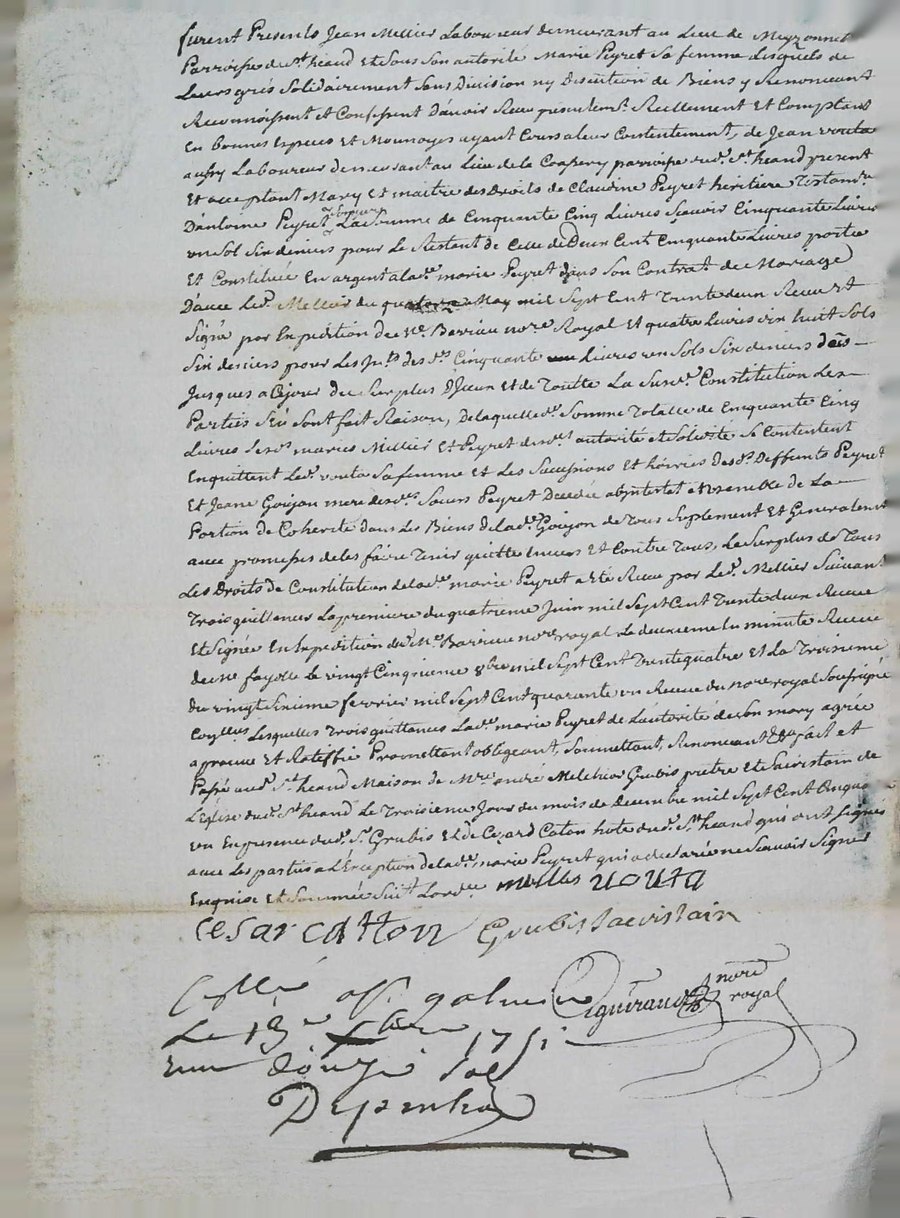 furent Presents Jean Mellier Laboureur demeurant au Lieu de Meyzonnel
Parroisse du St heand Et Sous Son autorité Marie Peyret Sa femme Lesquels de
Leurs grés Solidairement Sans Division ny Discution de Biens y Renoncant
Reconnoissent et Confessent D'avoir Receu présentemt Reellement Et Comptant
En bonnes Especes et Monnoyes ayant Cours a leur Contentement, de Jean vouta
Laboureur demeurant au Lieu de la parroisse dud. St heand present
Et acceptant Mary Et maitre des Droits de Claudine Peyret héritiere Testamre
D'antoine Peyret La Somme de Cinquante Cinq Livres Scavoir Cinquante Livres
un Sol Six deniers pour Le Restant de Celle de Deux Cent Cinquante Livres portée
Et Constituée En argent a lade marie Peyret dans Son Contrat de Mariage
D'avec Led. Mellier du May mil Sept Cent Trente deux Receu Et
Signé par Expédition de Me Barrieu nore Royal Et quatre Livres dix huit Sols
Six deniers pour Les des des Cinquante Livres un Sols Six deniers
Jusques a Cejour du Surplus D'Iceux Et de Toutte La Susde Constitution Les
Parties S'en Sont fait Raison, De laquelle de Somme Totalle de Cinquante Cinq
Livres Lesds mariés Mellier Et Peyret autorité et Solidité Se Contentent
Enquittent Led. vouta Sa femme et Les Sucessions Et hoiries desds Deffunts Peyret
Et Jeanne Goujon mere desdes Soeurs Peyret Decedée abintestat Ensemble de La
Portion de Coherité dans Les Biens de lade Goujon de Tous Suplement Et Generalement
avec promesses de les faire Tenir quitte Envers Et Contre Tous, Le Surplus de Tous
Les Droits de Constitution de lade marie Peyret a Eté Receu par Led. Mellier Suivant
Trois quittances La premiere du quatrieme Juin mil Sept Cent Trente deux Receue
Et Signée En Expédition dud. Me Barrieu nore royal La deuxieme En minute Receue
de Me fayolle Le vingt Cinquieme 8bre mil Sept Cent Trente quatre Et La Troisieme
du vingt Sixieme fevrier mil Sept Cent quarante un Receue du nore royal Soussigné
Lesquelles Trois quittances Lade marie Peyret de L'autorité de Son mary agrée
aprouve Et Ratiffie Promettant obligeant, Soumettant, Renoncant fait et
Passé aud. St heand Maison de Mre andré Melchior Grubis prêtre Et Sacristain de
L'Eglise dud. St heand Le Troisieme Jour du mois de decembre mil Sept Cent Cinqua
un En presence dud. Sr Grubis Et de Cesard Caton hote dud. St heand qui ont Signés
avec Les parties a L'Exception de lade marie Peyret qui a declaré ne Scavoir Signer
Enquise Et Sommée Suivt Lordce mellier vouta
Cesar catton Grubis Sacristain
nore
royal
Le 13e Xbre 1751
douze Sols